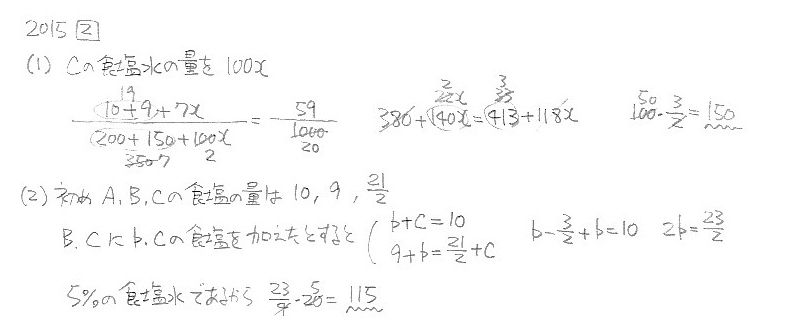 2015 ②
(1) Cの食塩水の量を 100x
(10+9+7x)/(200+150+100x) = 59/1000 19 350 7 2 20 380+140x=413+118x 22x 33 2 3 100・3/2=150 50
(2) 初め A, B, Cの食塩の量は 10, 9, 21/2
B, Cにb, cの食塩を加えたとすると { b+c=10 9+b=21/2+c b-3/2+b=10 2b=23/2
5%の食塩水であるから 23/4・20=115 5